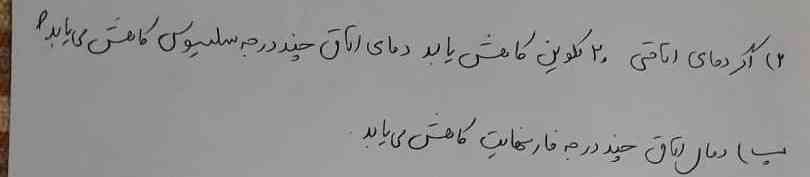 ۲) اگر دمای اتاقی ۲۰ کلوین کاهش یابد دمای اتاق چند درجه سلسیوس کاهش می‌یابد؟
ب) دمای اتاق چند درجه فارنهایت کاهش می‌یابد.